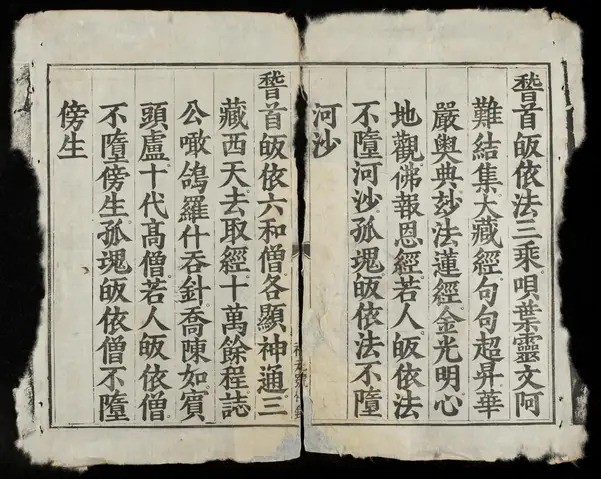 稽首皈依法三乘唄葉靈文阿
難結集大藏經句句超昇華
嚴奥典玅法蓮經金光明心
地觀佛報恩經若人皈依法
不墮河沙孤䰟皈依法不墮
河沙
稽首皈依六和僧各顯神通三
藏西天去取經十萬餘程誌
公噉鴿羅什吞針喬陳如賓
頭盧十代髙僧若人皈依僧
不墮傍生孤䰟皈依僧不墮
傍生